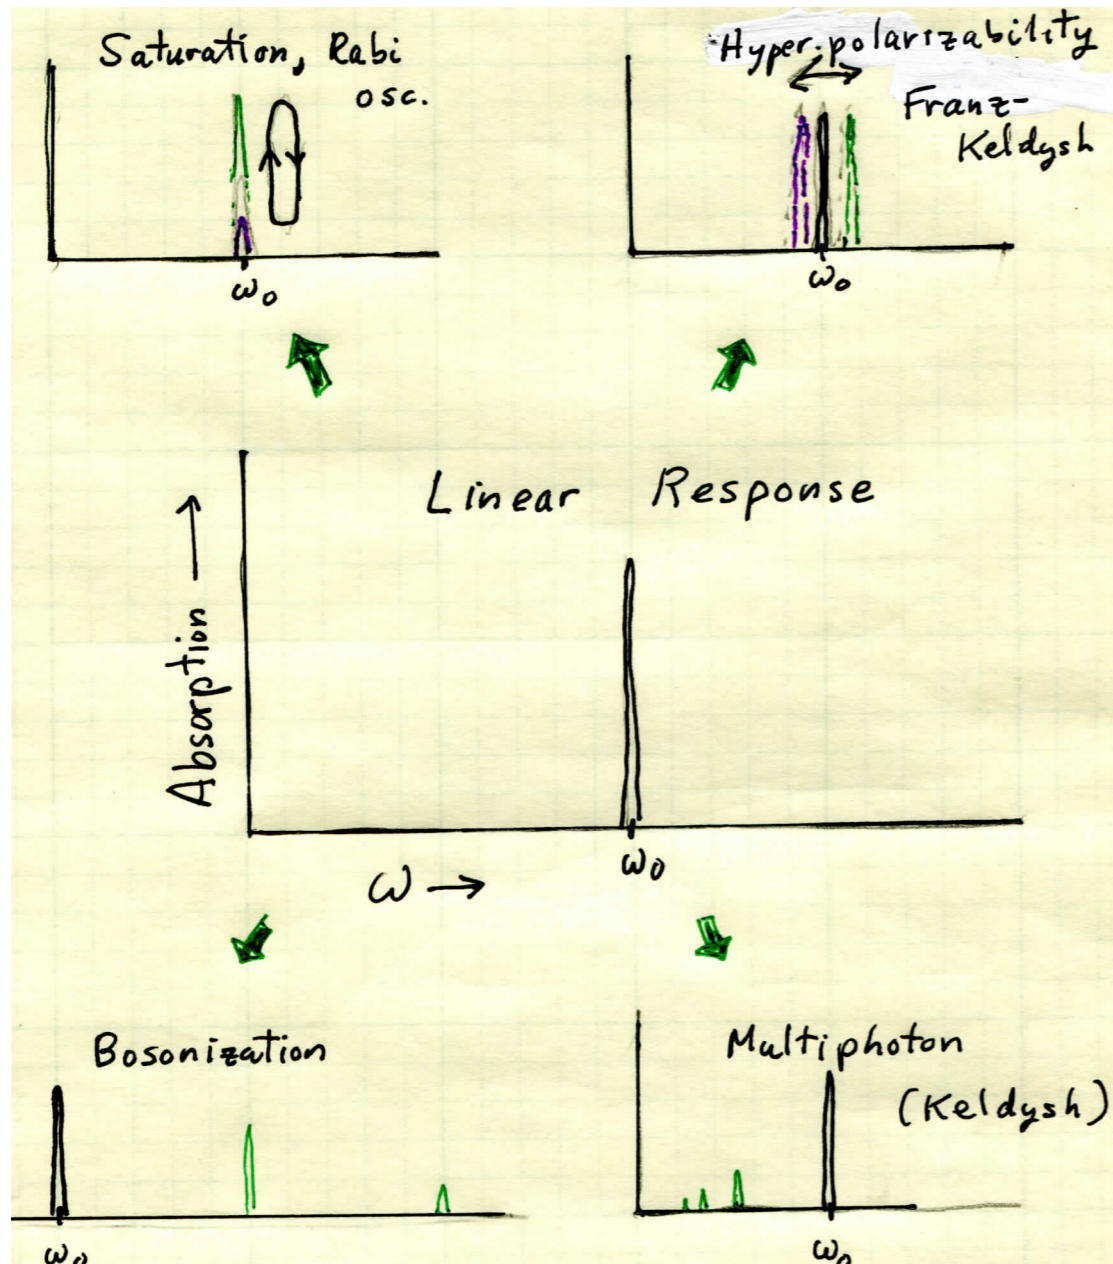 Saturation, Rabi
osc.
ω₀
Hyper-polarizability
Franz-
Keldysh
ω₀
Linear Response
Absorption →
ω₀
ω →
Bosonization
ω₀
Multiphoton
(Keldysh)
ω₀